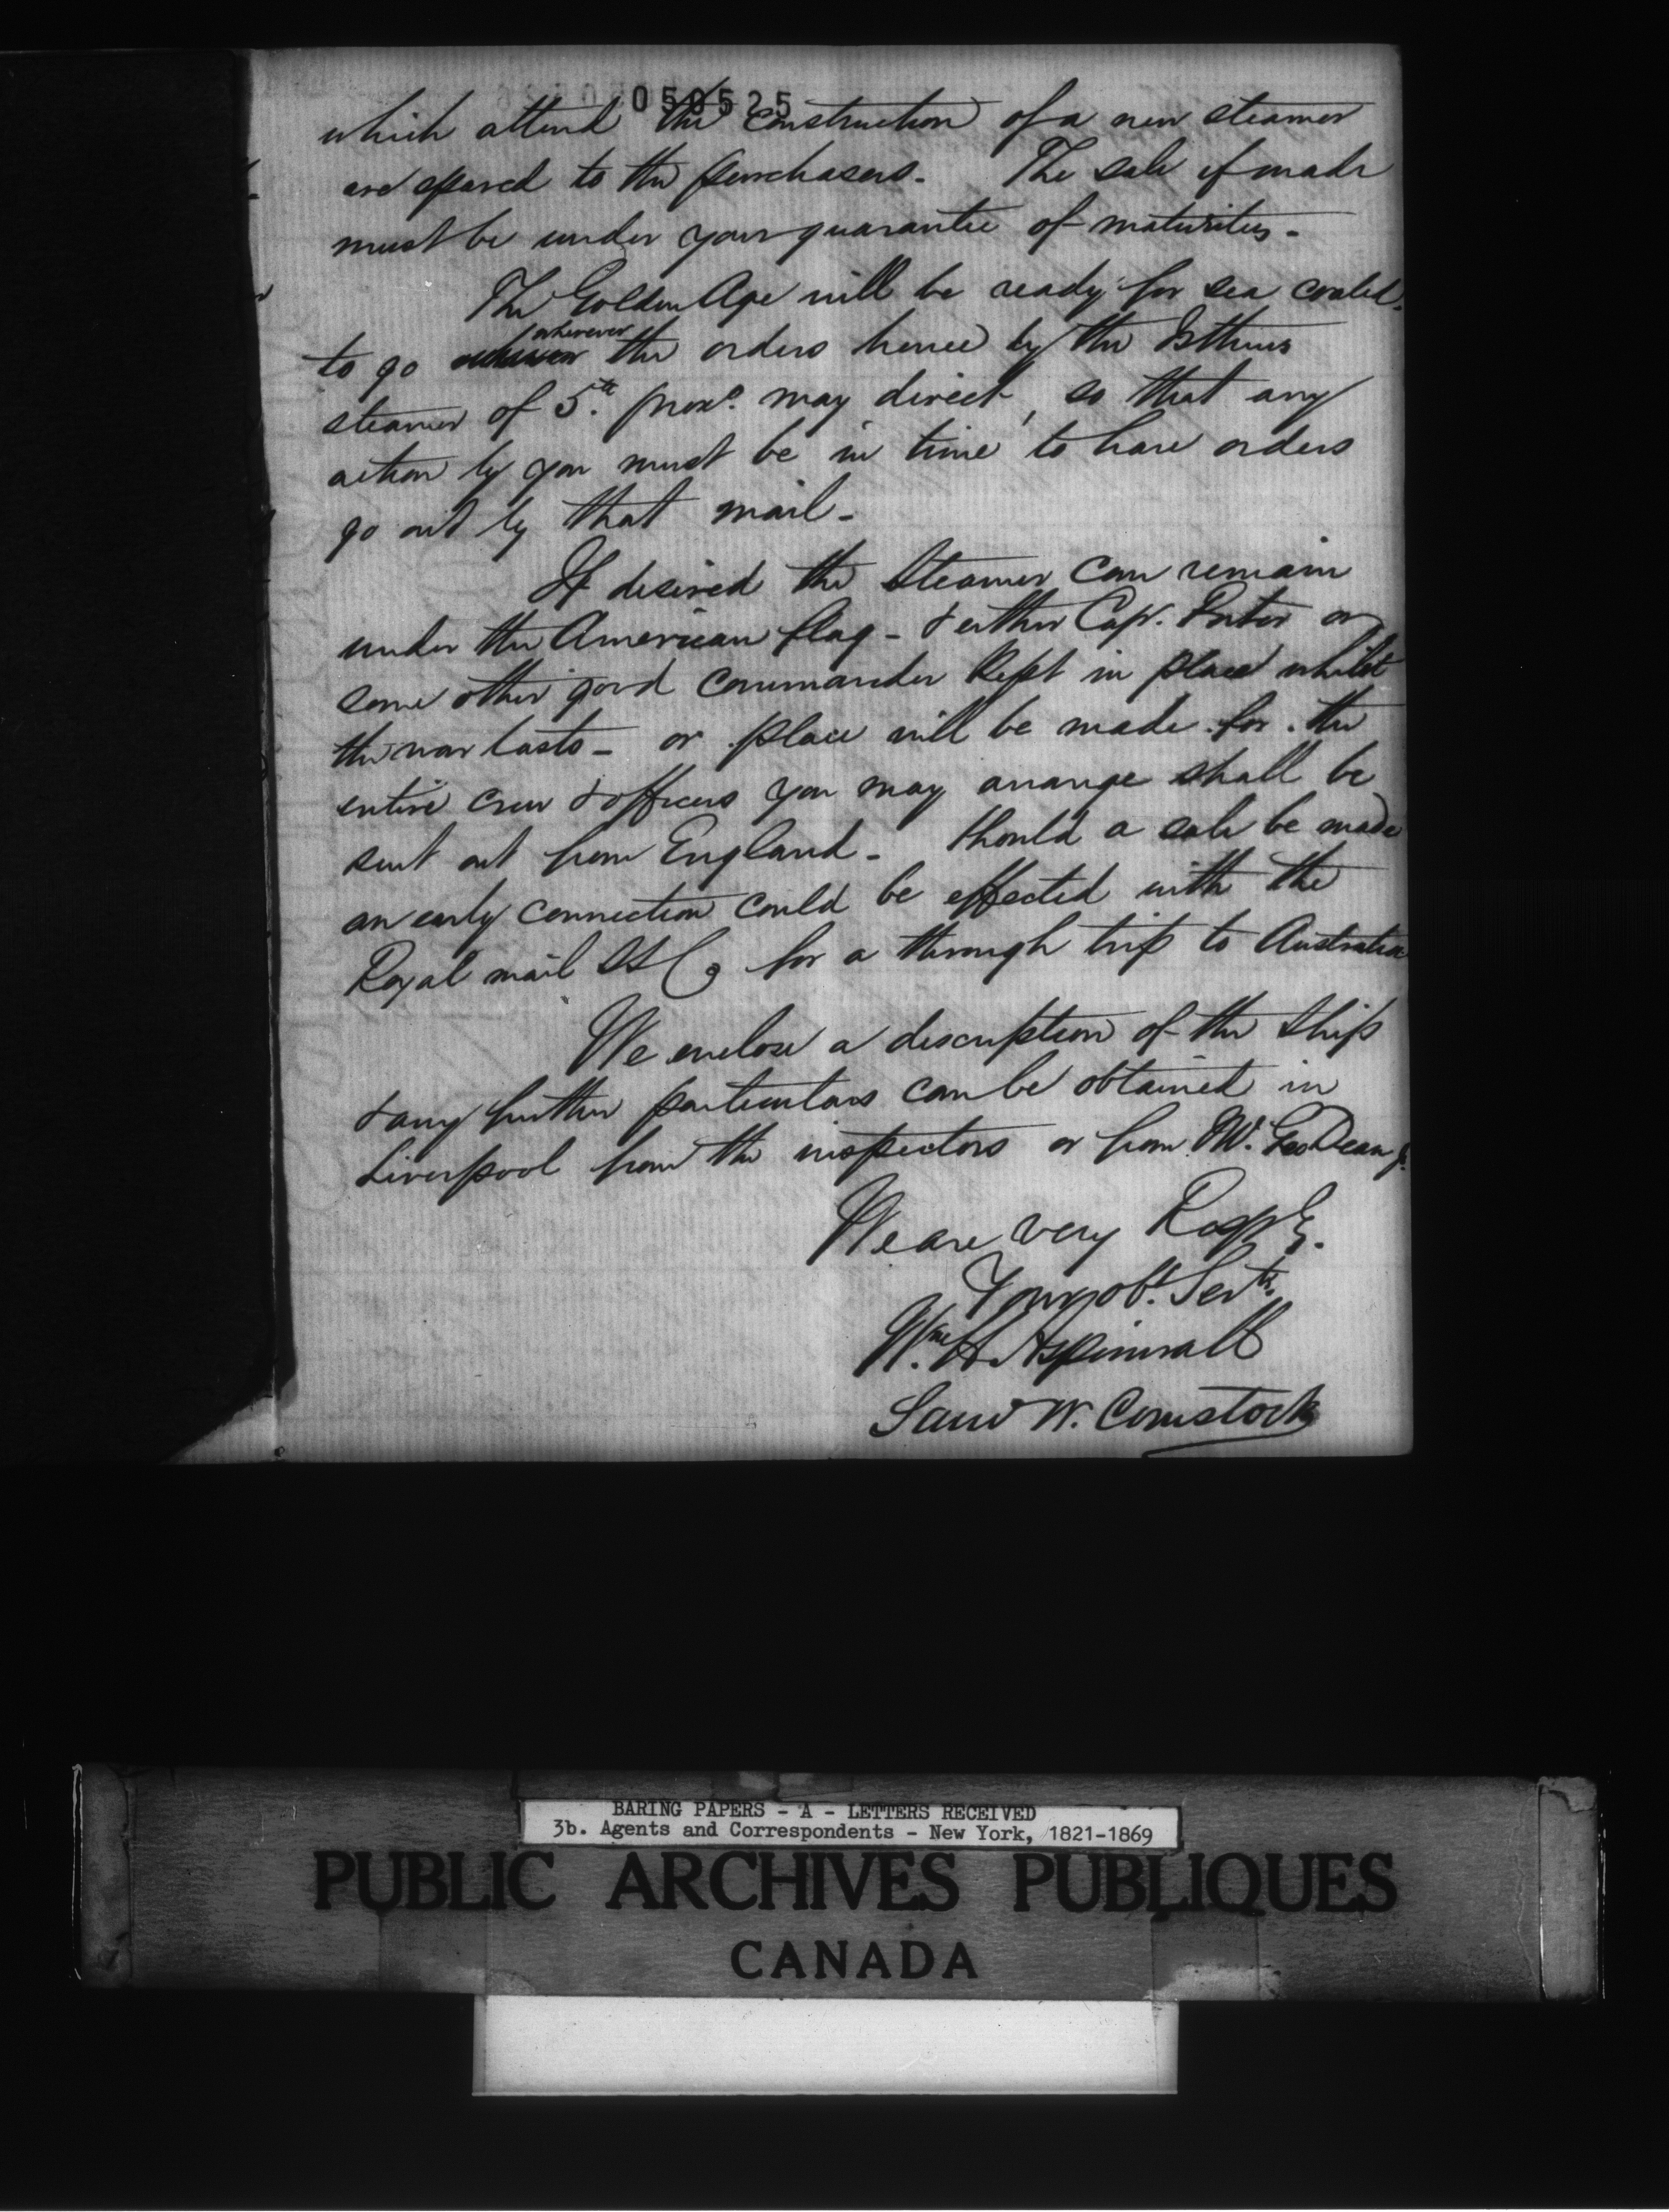 050525
which attend the construction of a new steamer
are spared to the purchasers. The sale if made
must be under your guarantee of maturities.
The Golden Age will be ready for sea coaled
to go wherever the orders hence by the Isthmus
steamer of 5th. proxo. may direct, so that any
action by you must be in time to have orders
go out by that mail.
If desired the Steamer can remain
under the American flag - & either Cap. Porter or
some other good commander kept in place whilst
the war lasts - or place will be made for the
entire crew & officers you may arrange shall be
sent out from England. Should a sale be made
an early connection could be effected with the
Royal mail SS Co for a through trip to Australia
We enclose a description of the Ship
& any further particulars can be obtained in
Liverpool from the inspectors or from Mr. Geo Dean Jr.
We are very Resply.
Your obt. Servts.
Wm. H. Aspinwall
Saml W. Comstock
BARING PAPERS - A - LETTERS RECEIVED
3b. Agents and Correspondents - New York, 1821-1869
PUBLIC ARCHIVES PUBLIQUES
CANADA